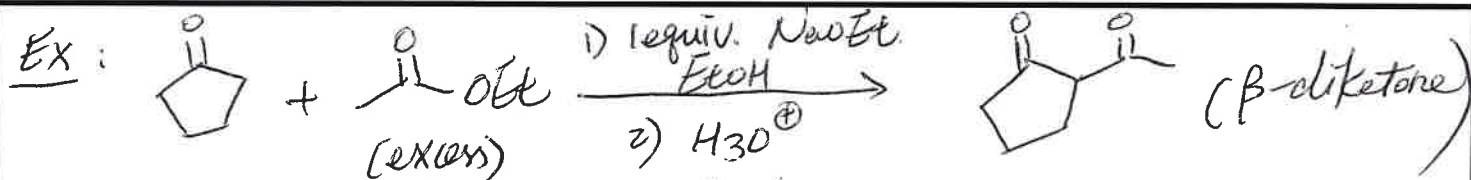 Ex :
O
+
O
OEt
(excess)
1) 1equiv. NaOEt
EtOH
2) H3O⊕
O
O
(β-diketone)